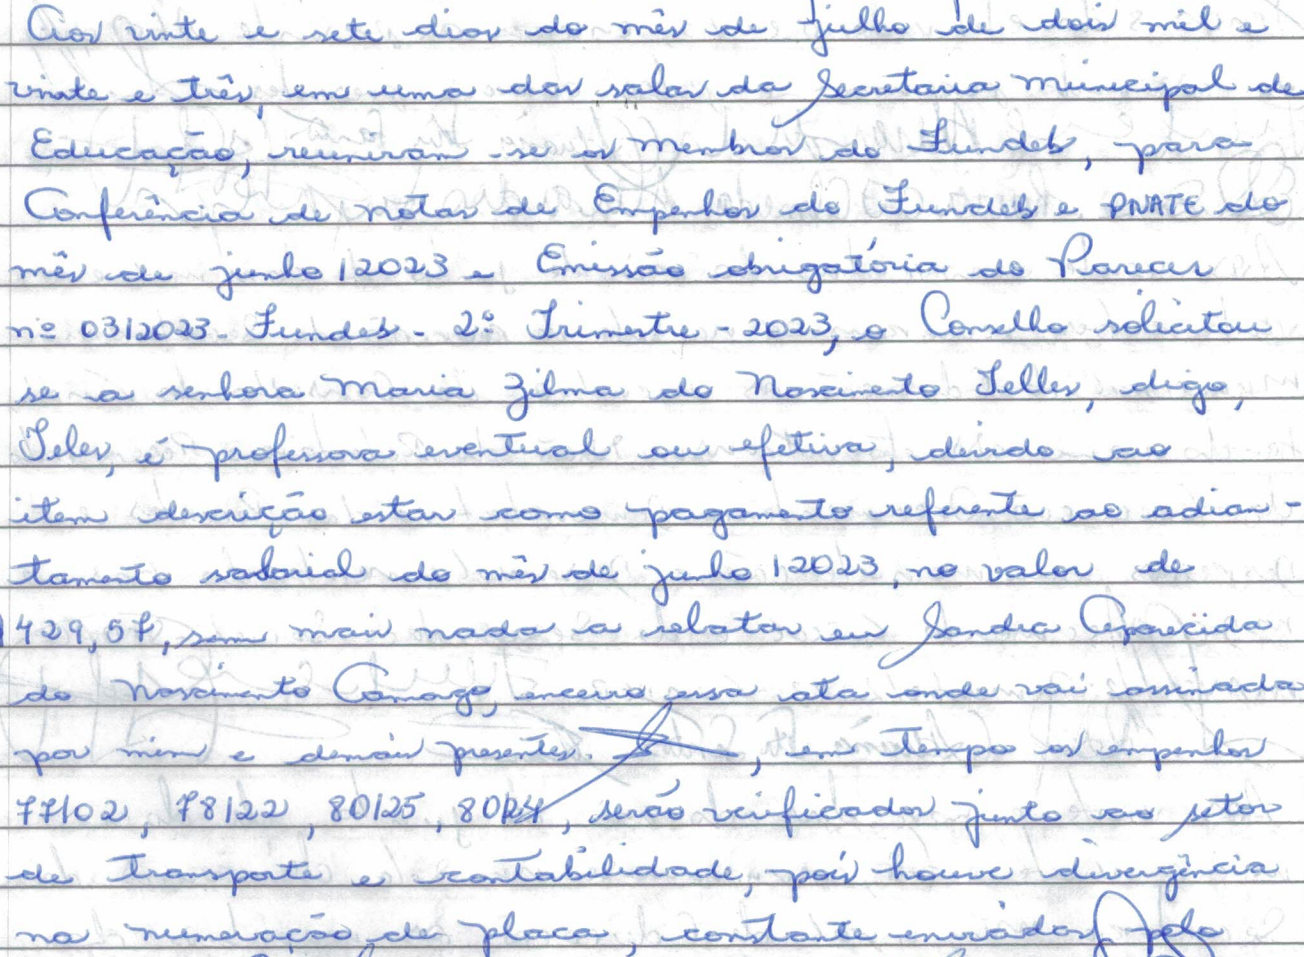 Aos vinte e sete dias do mês de julho de dois mil e
vinte e três, em uma das salas da Secretaria Municipal de
Educação, reuniram-se os Membros do Fundeb, para
Conferência de notas de Empenhos do Fundeb e PNATE do
mês de junho/2023 e Emissão obrigatória do Parecer
nº 03/2023 - Fundeb - 2º Trimestre - 2023, o Conselho solicitou
se a senhora Maria Zilma do Nascimento Telles, digo,
Teles, é professora eventual ou efetiva, devido ao
item descrição estar como pagamento referente ao adian-
tamento salarial do mês de junho/2023, no valor de
1429,57, sem mais nada a relatar eu Sandra Aparecida
do Nascimento Camargo, encerro essa ata onde vai assinada
por mim e demais presentes. , em tempo os empenhos
77/02, 78/22, 80/25, 80/24, serão verificados junto ao setor
de Transporte e contabilidade, pois houve divergência
na numeração de placa, constante enviados pelo